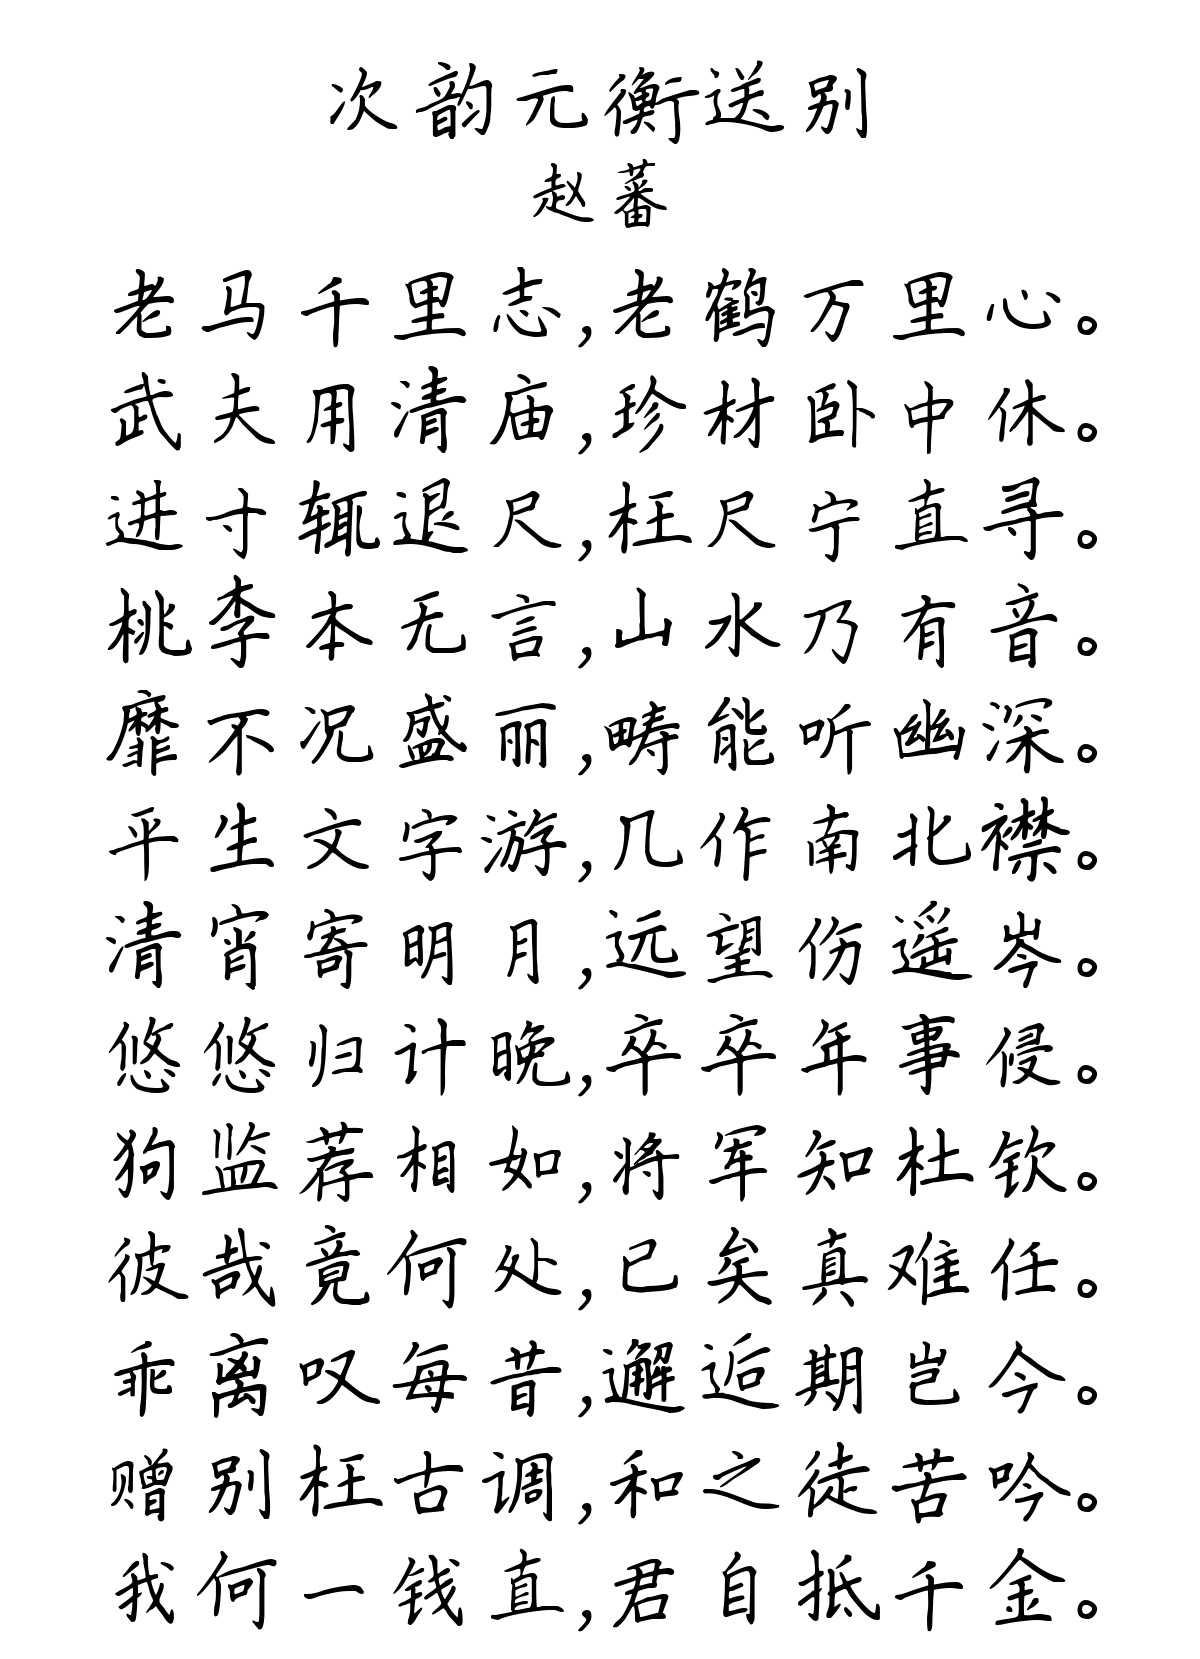 次韵元衡送别
赵蕃
老马千里志,老鹤万里心。
武夫用清庙,珍材卧中休。
进寸辄退尺,枉尺宁直寻。
桃李本无言,山水乃有音。
靡不况盛丽,畴能听幽深。
平生文字游,几作南北襟。
清宵寄明月,远望伤遥岑。
悠悠归计晚,卒卒年事侵。
狗监荐相如,将军知杜钦。
彼哉竟何处,已矣真难任。
乖离叹每昔,邂逅期岂今。
赠别枉古调,和之徒苦吟。
我何一钱直,君自抵千金。